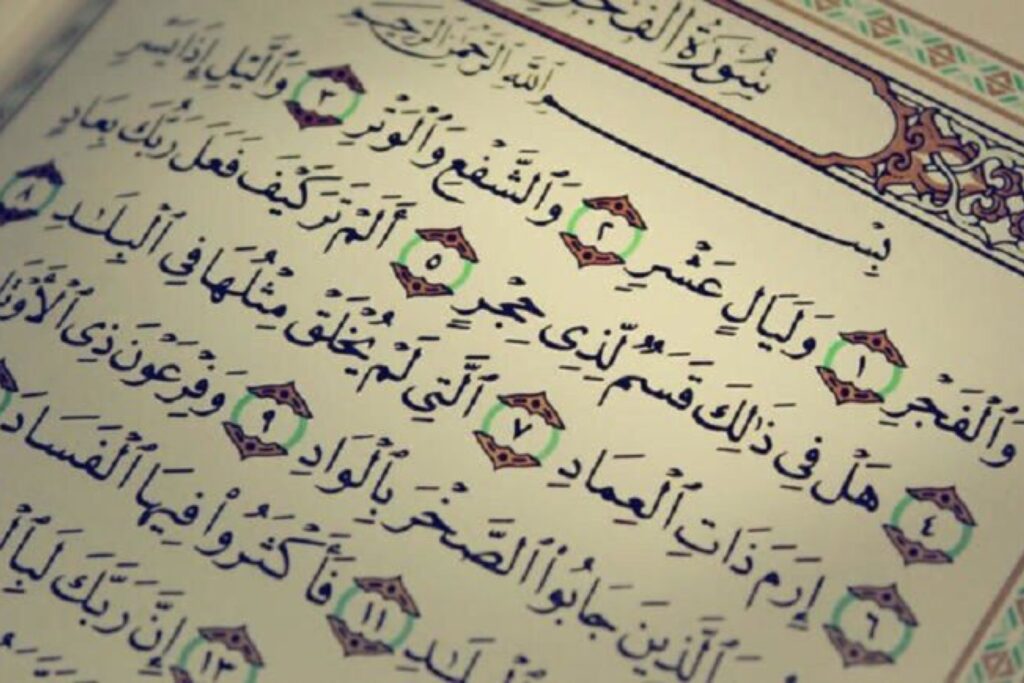 سُورَةُ الفَجْرِ
بِسْمِ ٱللَّهِ ٱلرَّحْمَٰنِ ٱلرَّحِيمِ
وَٱلْفَجْرِ ١ وَلَيَالٍ عَشْرٍ ٢ وَٱلشَّفْعِ وَٱلْوَتْرِ ٣ وَٱلَّيْلِ إِذَا يَسْرِ
٤ هَلْ فِي ذَٰلِكَ قَسَمٌ لِّذِي حِجْرٍ ٥ أَلَمْ تَرَ كَيْفَ فَعَلَ رَبُّكَ بِعَادٍ
٦ إِرَمَ ذَاتِ ٱلْعِمَادِ ٧ ٱلَّتِي لَمْ يُخْلَقْ مِثْلُهَا فِي ٱلْبِلَٰدِ ٨
ٱلَّذِينَ جَابُوا۟ ٱلصَّخْرَ بِٱلْوَادِ ٩ وَفِرْعَوْنَ ذِي ٱلْأَوْتَا
ٱلْبِلَٰدِ ١١ فَأَكْثَرُوا۟ فِيهَا ٱلْفَسَادَ
١٣ إِنَّ رَبَّكَ